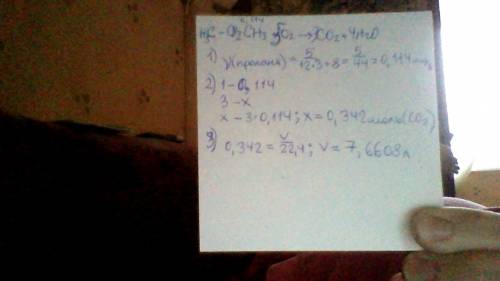 0,114
H3C - CH2CH3 5O2 → 3CO2 + 4H2O
1) ν(пропана) = 5/12·3+8 = 5/44 = 0,114 моль
2) 1 - 0,114
3 - x
x - 3·0,114; x = 0,342 моль (CO2)
3) 0,342 = V/22,4; V = 7,6608 л